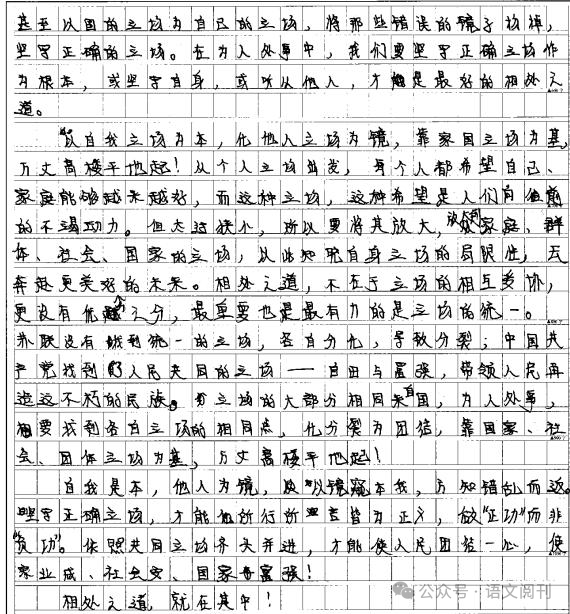 甚至以国的立场为自己的立场，将那些错误的镜子扬掉，
坚守正确的立场。在为人处事中，我们要坚守正确立场作
为根本，或坚守自身，或听从他人，才是最好的相处之
道。
以自我立场为本，化他人立场为镜，靠家国立场为基，
万丈高楼平地起！从个人立场出发，每个人都希望自己、
家庭能够越来越好，而这种立场，这种希望是人们向前
的不竭动力。但太过狭小，所以要将其放大，放到家庭、群
体、社会、国家的立场，从此知晓自身立场的局限性，去
奔赴更美好的未来。相处之道，不在于立场的相互妥协，
更没有优劣之分，最重要也是最有力的是立场的统一。
苏联没有找到统一的立场，各自分化，导致分裂；中国共
产党找到了人民共同的立场——自由与富强，带领人民再
造这不朽的民族。立场的大部分相同来自国，为人处事，
要找到各自立场的相同点，化分裂为团结，靠国家、社
会、团体立场为基，万丈高楼平地起！
自我是本，他人为镜，以镜窥本我，方知错乱而返。
坚守正确立场，才能所行所言皆为正义，做“正功”而非
“负功”。依照共同立场齐头并进，才能使人民团结一心，使
家业成、社会安、国家富强！
相处之道，就在其中！
公众号·语文阅刊